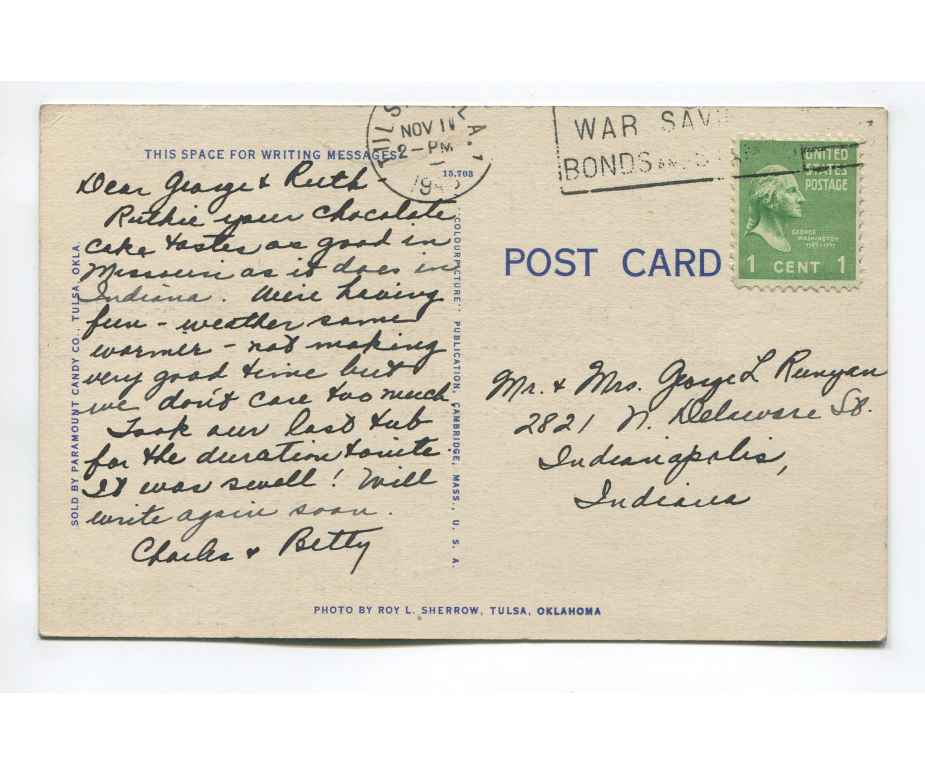 THIS SPACE FOR WRITING MESSAGES
Dear George & Ruth
Ruthie your chocolate
cake tastes as good in
Missouri as it does in
Indiana. We're having
fun - weather some
warmer - not making
very good time but
we don't care too much
Took our last tub
for the duration tonite.
It was swell! Will
write again soon.
Charles & Betty
SOLD BY PARAMOUNT CANDY CO., TULSA, OKLA.
"COLOURPICTURE" PUBLICATION, CAMBRIDGE, MASS., U. S. A.
NOV 11
2-PM
15,703
WAR
BONDS
UNITED
STATES
POSTAGE
GEORGE
WASHINGTON
1 CENT 1
POST CARD
Mr. & Mrs. George L Runyan
2821 N. Delaware St.
Indianapolis,
Indiana
PHOTO BY ROY L. SHERROW, TULSA, OKLAHOMA